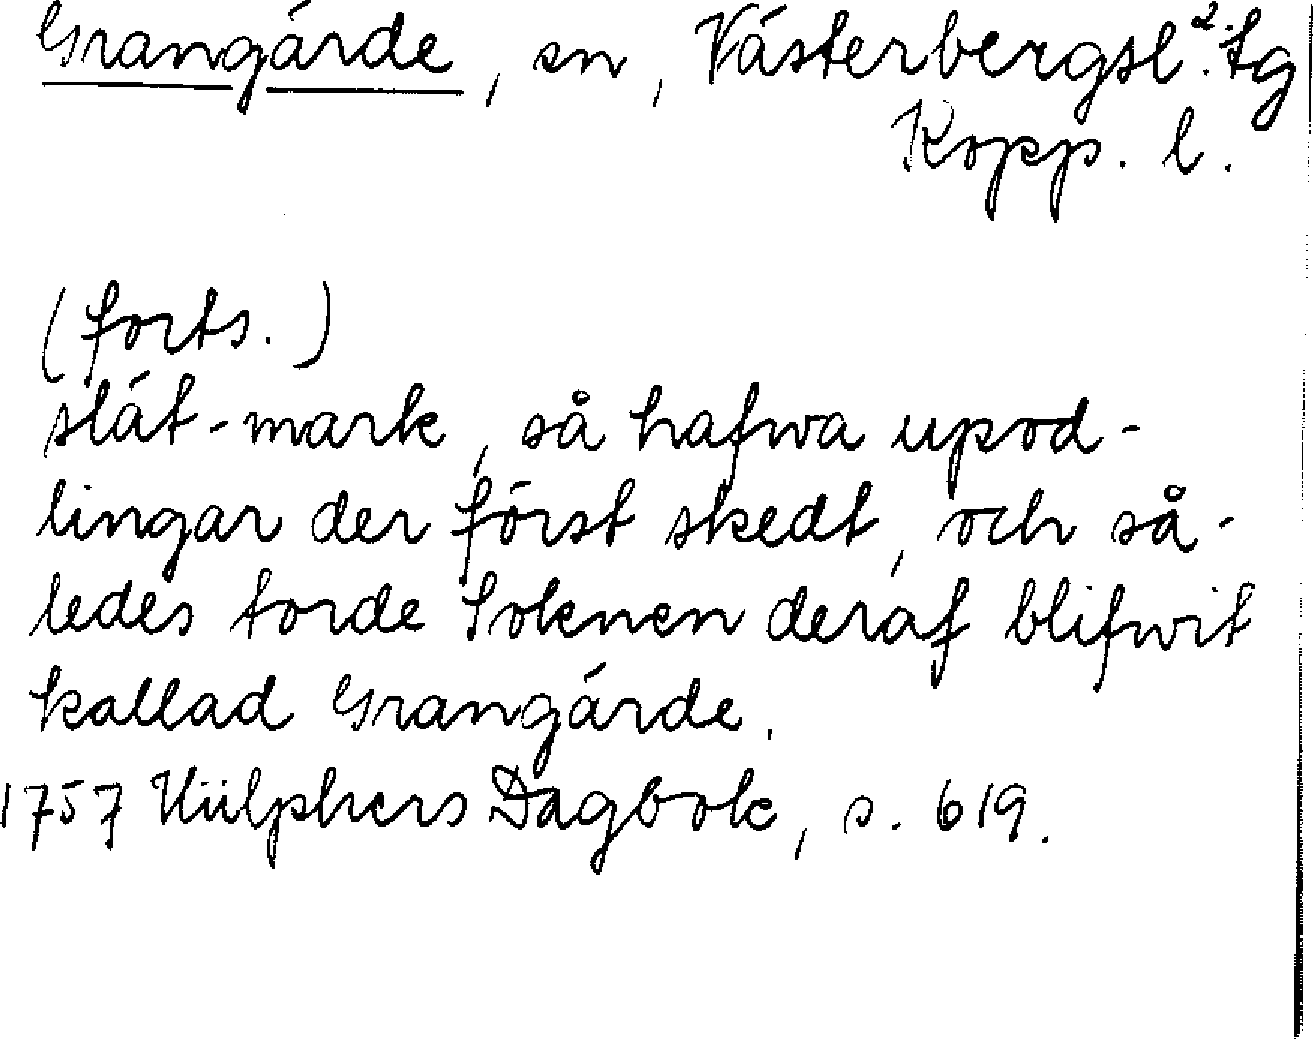 Grangärde, sn, Västerbergsl:s tg
Kopp. l.
(forts.)
slåt-mark, så hafwa upod-
lingar der först skedt, och så-
ledes torde Soknen deraf blifwit
kallad Grangärde.
1757 Hülphers Dagbok, s. 619.